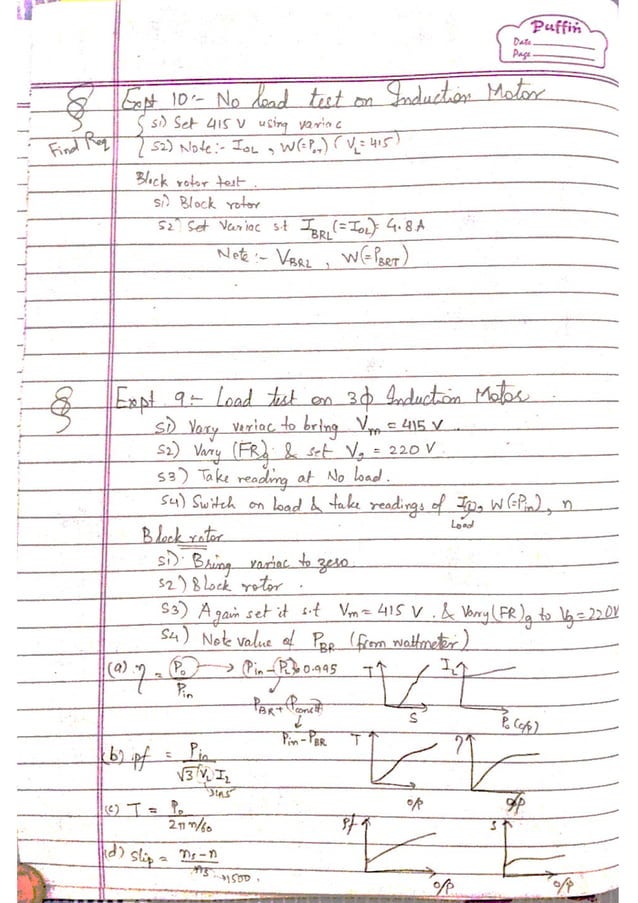 Puffin
Date
Page
Expt 10:- No load test on Induction Motor
S1) Set 415 V using variac
Find Req
S2) Note:- IOL , W(=POT) (VL=415)
Block rotor test.
S1) Block rotor
S2) Set Variac s.t IBRL(=IOL)= 4.8A
Note:- VBRL , W(=PBRT)
Expt 9:- Load test on 3ϕ Induction Motor
S1) Vary variac to bring Vm = 415 V.
S2) Vary (FR)g & set Vg = 220 V.
S3) Take reading at No load.
S4) Switch on load & take readings of I, W(=Pin), n
Load
Block rotor
S1) Bring variac to zero.
S2) Block rotor.
S3) Again set it s.t Vm = 415 V. & Vary (FR)g to Vg=220V
S4) Note value of PBR (from wattmeter)
(a) η = Po/Pin → (Pin - PL) 0.995
PBR + Pconst
Pin - PBR
T
S
IL
Po (o/p)
(b) pf = Pin/√3 VL IL
T
o/p
η
o/p
(c) T = Po/2πn/60
(d) Slip = ns-n/ns →1500.
Pf
o/p
S
o/p